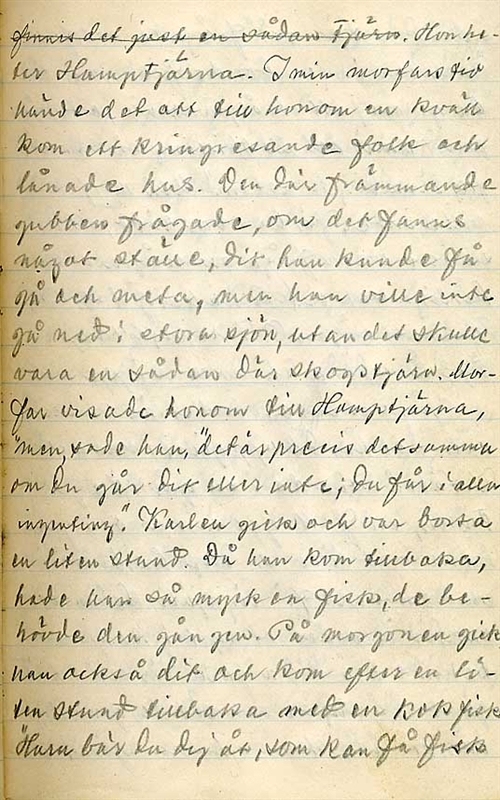 finnes det just en sådan tjärn. Hon he-
ter Hamptjärna. I min morfars tid
hände det att till honom en kväll
kom ett kringresande folk och
lånade hus. Den där främmande
gubben frågade, om det fanns
något ställe, dit han kunde få
gå och meta, men han ville inte
gå ned i stora sjön, utan det skulle
vara en sådan där skogstjärn. Mor-
far visade honom till Hamptjärna,
"men, sade han, "det är precis detsamma
om du går dit eller inte; du får i alla
ingenting." Karlen gick och var borta
en liten stund. Då han kom tillbaka,
hade han så mycken fisk, de be-
hövde den gången. På morgonen gick
han också dit och kom efter en li-
ten stund tillbaka med en kok fisk
"Huru bär du dig åt, som kan få fisk